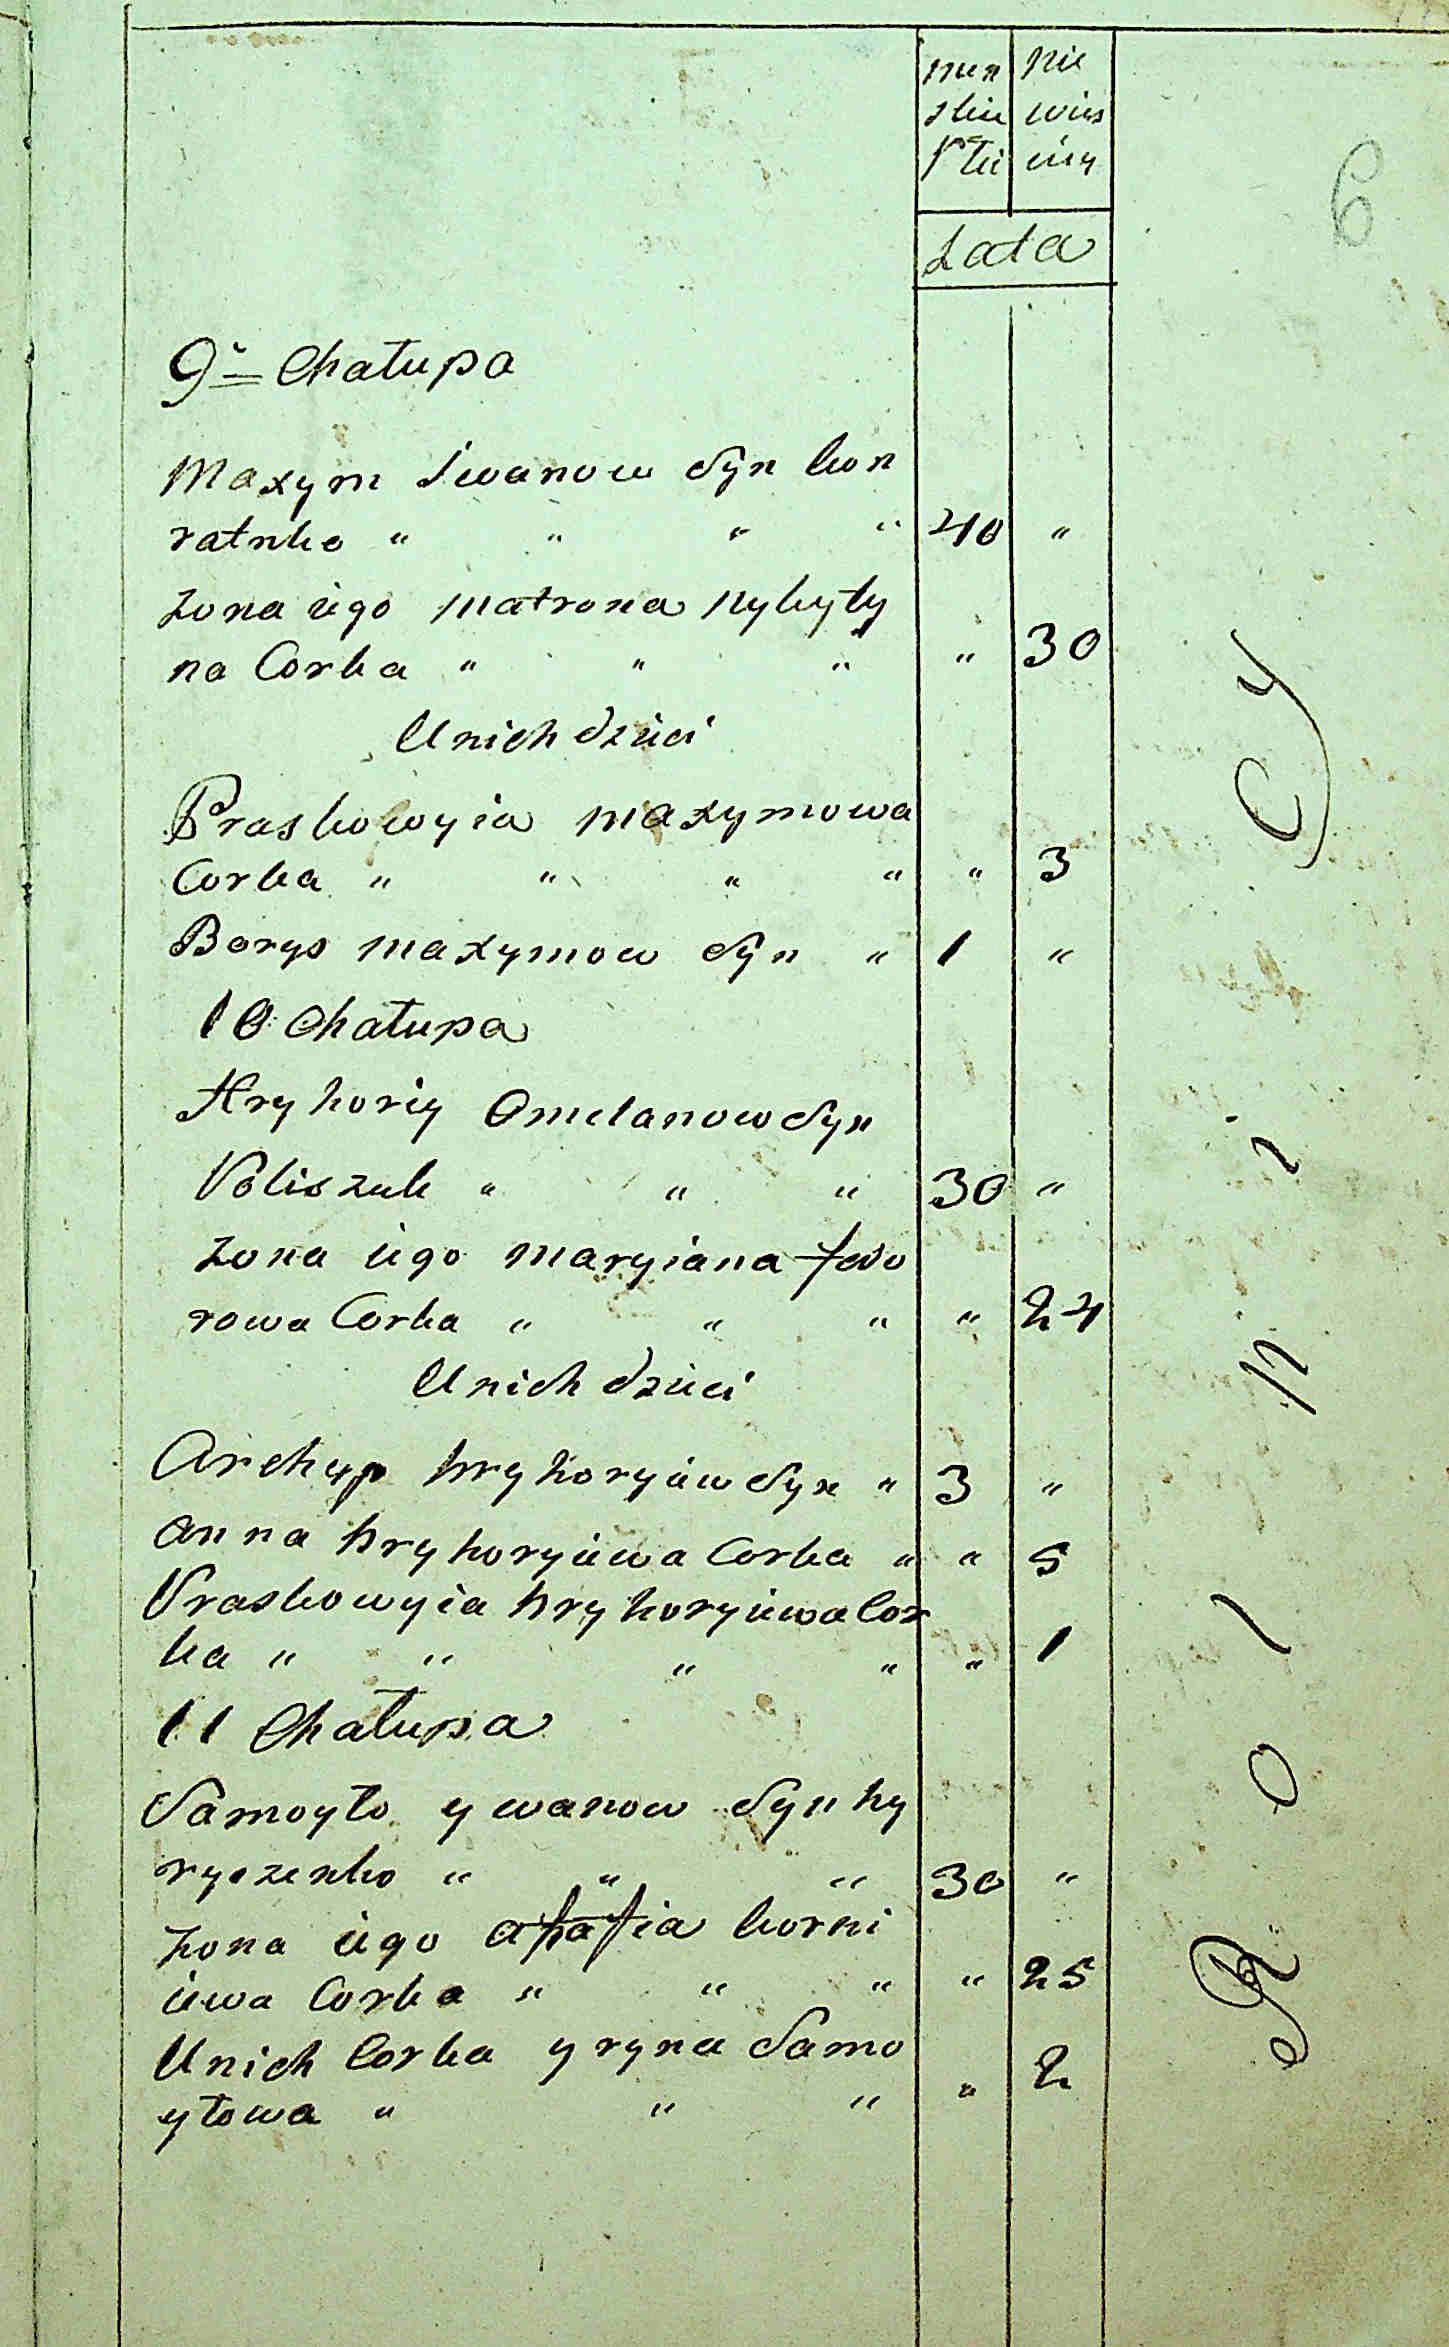 męz
skie
płci
Nie
wies
ciey
Lata
6
9a Chałupa
Maxym Iwanow Syn kon
ratnko " " " " 40 "
Zona iego Matrona Nykyty
na Corka " " " " 30
U nich dzieci
Praskowyia Maxymowa
Corka " " " " " 3
Borys Maxymow Syn " 1 "
10 Chałupa
Hryhoriy Omelanow Syn
Poliszuk " " " 30 "
Zona iego Maryiana fedo
rowa Corka " " " " 24
U nich dzieci
Archyp hryhoryiew Syn " 3 "
Anna hryhoryiewa Corka " " 5
Praskowyia hryhoryiewa Cor
ka " " " " " 1
11 Chałupa
Samoyło ywanow Syn hy
ryczenko " " " 30 "
Zona iego ahafia korni
iewa Corka " " " " 25
U nich Corka yryna Samo
yłowa " " " " 2
Rolnicy